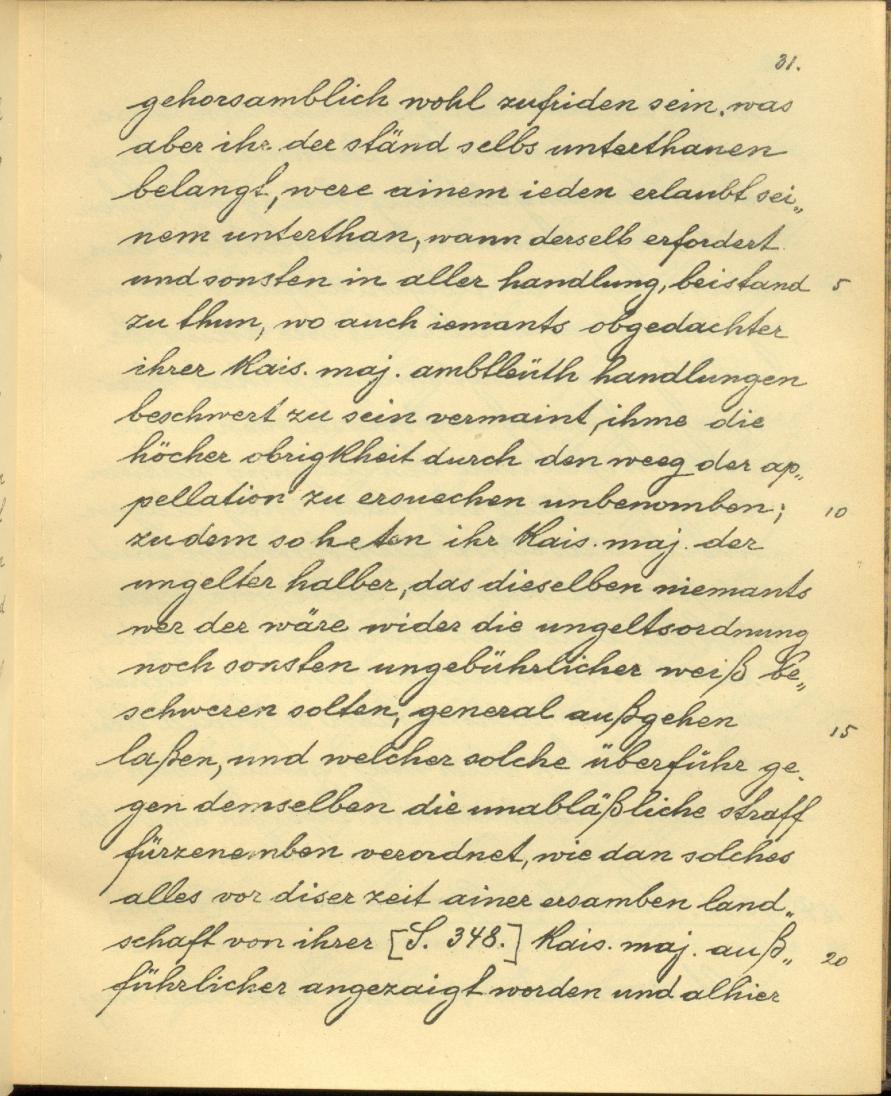 31.
gehorsamblich wohl zufriden sein, was
aber ihr der ständ selbs unterthanen
belangt, were ainem ieden erlaubt sei„
nem unterthan, wann derselb erfordert
und sonsten in aller handlung, beistand 5
zu thun, wo auch iemants obgedachter
ihrer Kais. maj. ambtleüth handlungen
beschwert zu sein vermaint, ihme die
höcher obrigkheit durch den weeg der ap„
pellation zu ersuechen unbenomben; 10
zudem so heten ihr Kais. maj. der
ungelter halber, das dieselben niemants
wer der wäre wider die ungeltsordnung
noch sonsten ungebührlicher weiß be„
schweren solten, general außgehen
laßen, und welcher solche überführ ge„ 15
gen demselben die unabläßliche straff
fürzenemben verordnet, wie dan solches
alles vor diser zeit ainer ersamben land„
schaft von ihrer [S. 348.] Kais. maj. auß„ 20
führlicher angezaigt worden und alhier